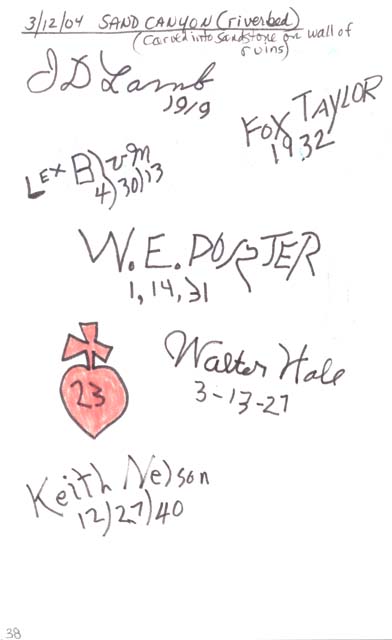 3/12/04 SAND CANYON (riverbed)
(carved into sandstone on wall of
ruins)
J D Lamb
1919
FOX TAYLOR
1932
Lex
4)30)13
W. E. PORTER
1, 14, 31
23
Walter Hale
3-13-27
Keith Nelson
12)27)40
38